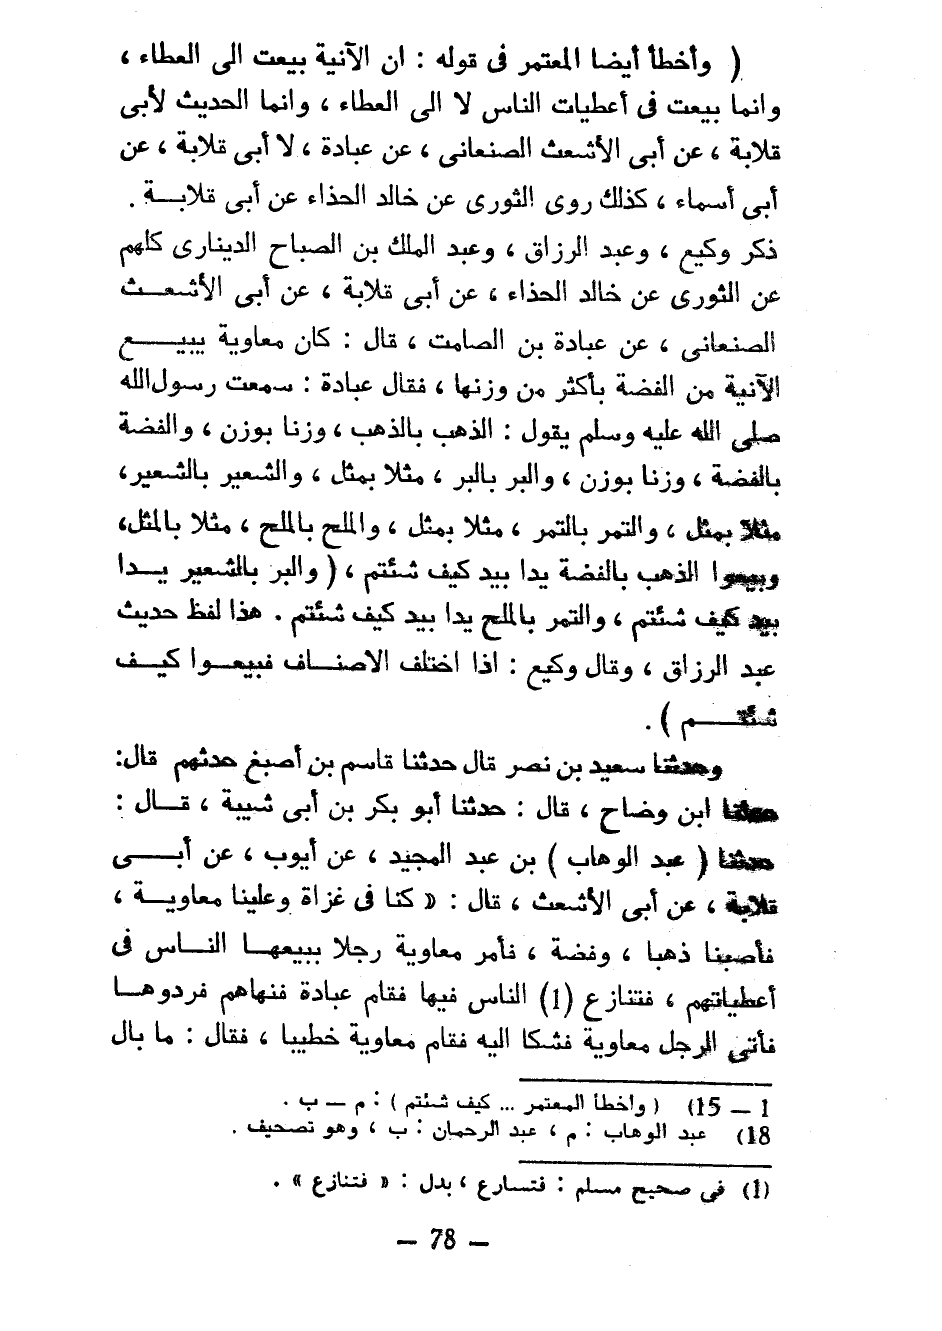 ( وأخطأ أيضا المعتمر فى قوله : ان الآنية بيعت الى العطاء ،
وانما بيعت فى أعطيات الناس لا الى العطاء ، وانما الحديث لأبى
قلابة ، عن أبى الأشعث الصنعانى ، عن عبادة ، لا أبى قلابة ، عن
أبى أسماء ، كذلك روى الثورى عن خالد الحذاء عن أبى قلابـــة .
ذكر وكيع ، وعبد الرزاق ، وعبد الملك بن الصباح الدينارى كلهم
عن الثورى عن خالد الحذاء ، عن أبى قلابة ، عن أبى الأشعــث
الصنعانى ، عن عبادة بن الصامت ، قال : كان معاوية يبيـــــع
الآنية من الفضة بأكثر من وزنها ، فقال عبادة : سمعت رسول الله
صلى الله عليه وسلم يقول : الذهب بالذهب ، وزنا بوزن ، والفضة
بالفضة ، وزنا بوزن ، والبر بالبر ، مثلا بمثل ، والشعير بالشعير،
مثلا بمثل ، والتمر بالتمر ، مثلا بمثل ، والملح بالملح ، مثلا بالمثل،
وبيعوا الذهب بالفضة يدا بيد كيف شئتم ، ( والبر بالشعير يــدا
بيد كيف شئتم ، والتمر بالملح يدا بيد كيف شئتم . هذا لفظ حديث
عبد الرزاق ، وقال وكيع : اذا اختلف الاصنــاف فبيعــوا كيــف
شئتـــــم ) .
وحدثنا سعيد بن نصر قال حدثنا قاسم بن أصبغ حدثهم قال:
حدثنا ابن وضاح ، قال : حدثنا أبو بكر بن أبى شيبة ، قــال :
حدثنا ( عبد الوهاب ) بن عبد المجيد ، عن أيوب ، عن أبـــى
قلابة ، عن أبى الأشعث ، قال : « كنا فى غزاة وعلينا معاويــة ،
فأصبنا ذهبا ، وفضة ، فأمر معاوية رجلا ببيعهــا النــاس فى
أعطياتهم ، فتنازع (1) الناس فيها فقام عبادة فنهاهم فردوهــا
فأتى الرجل معاوية فشكا اليه فقام معاوية خطيبا ، فقال : ما بال
1 — 15) ( وأخطأ المعتمر ... كيف شئتم ) : م — ب .
18) عبد الوهاب : م ، عبد الرحمان : ب ، وهو تصحيف .
(1) فى صحيح مسلم : فتسارع ، بدل : « فتنازع » .
— 78 —